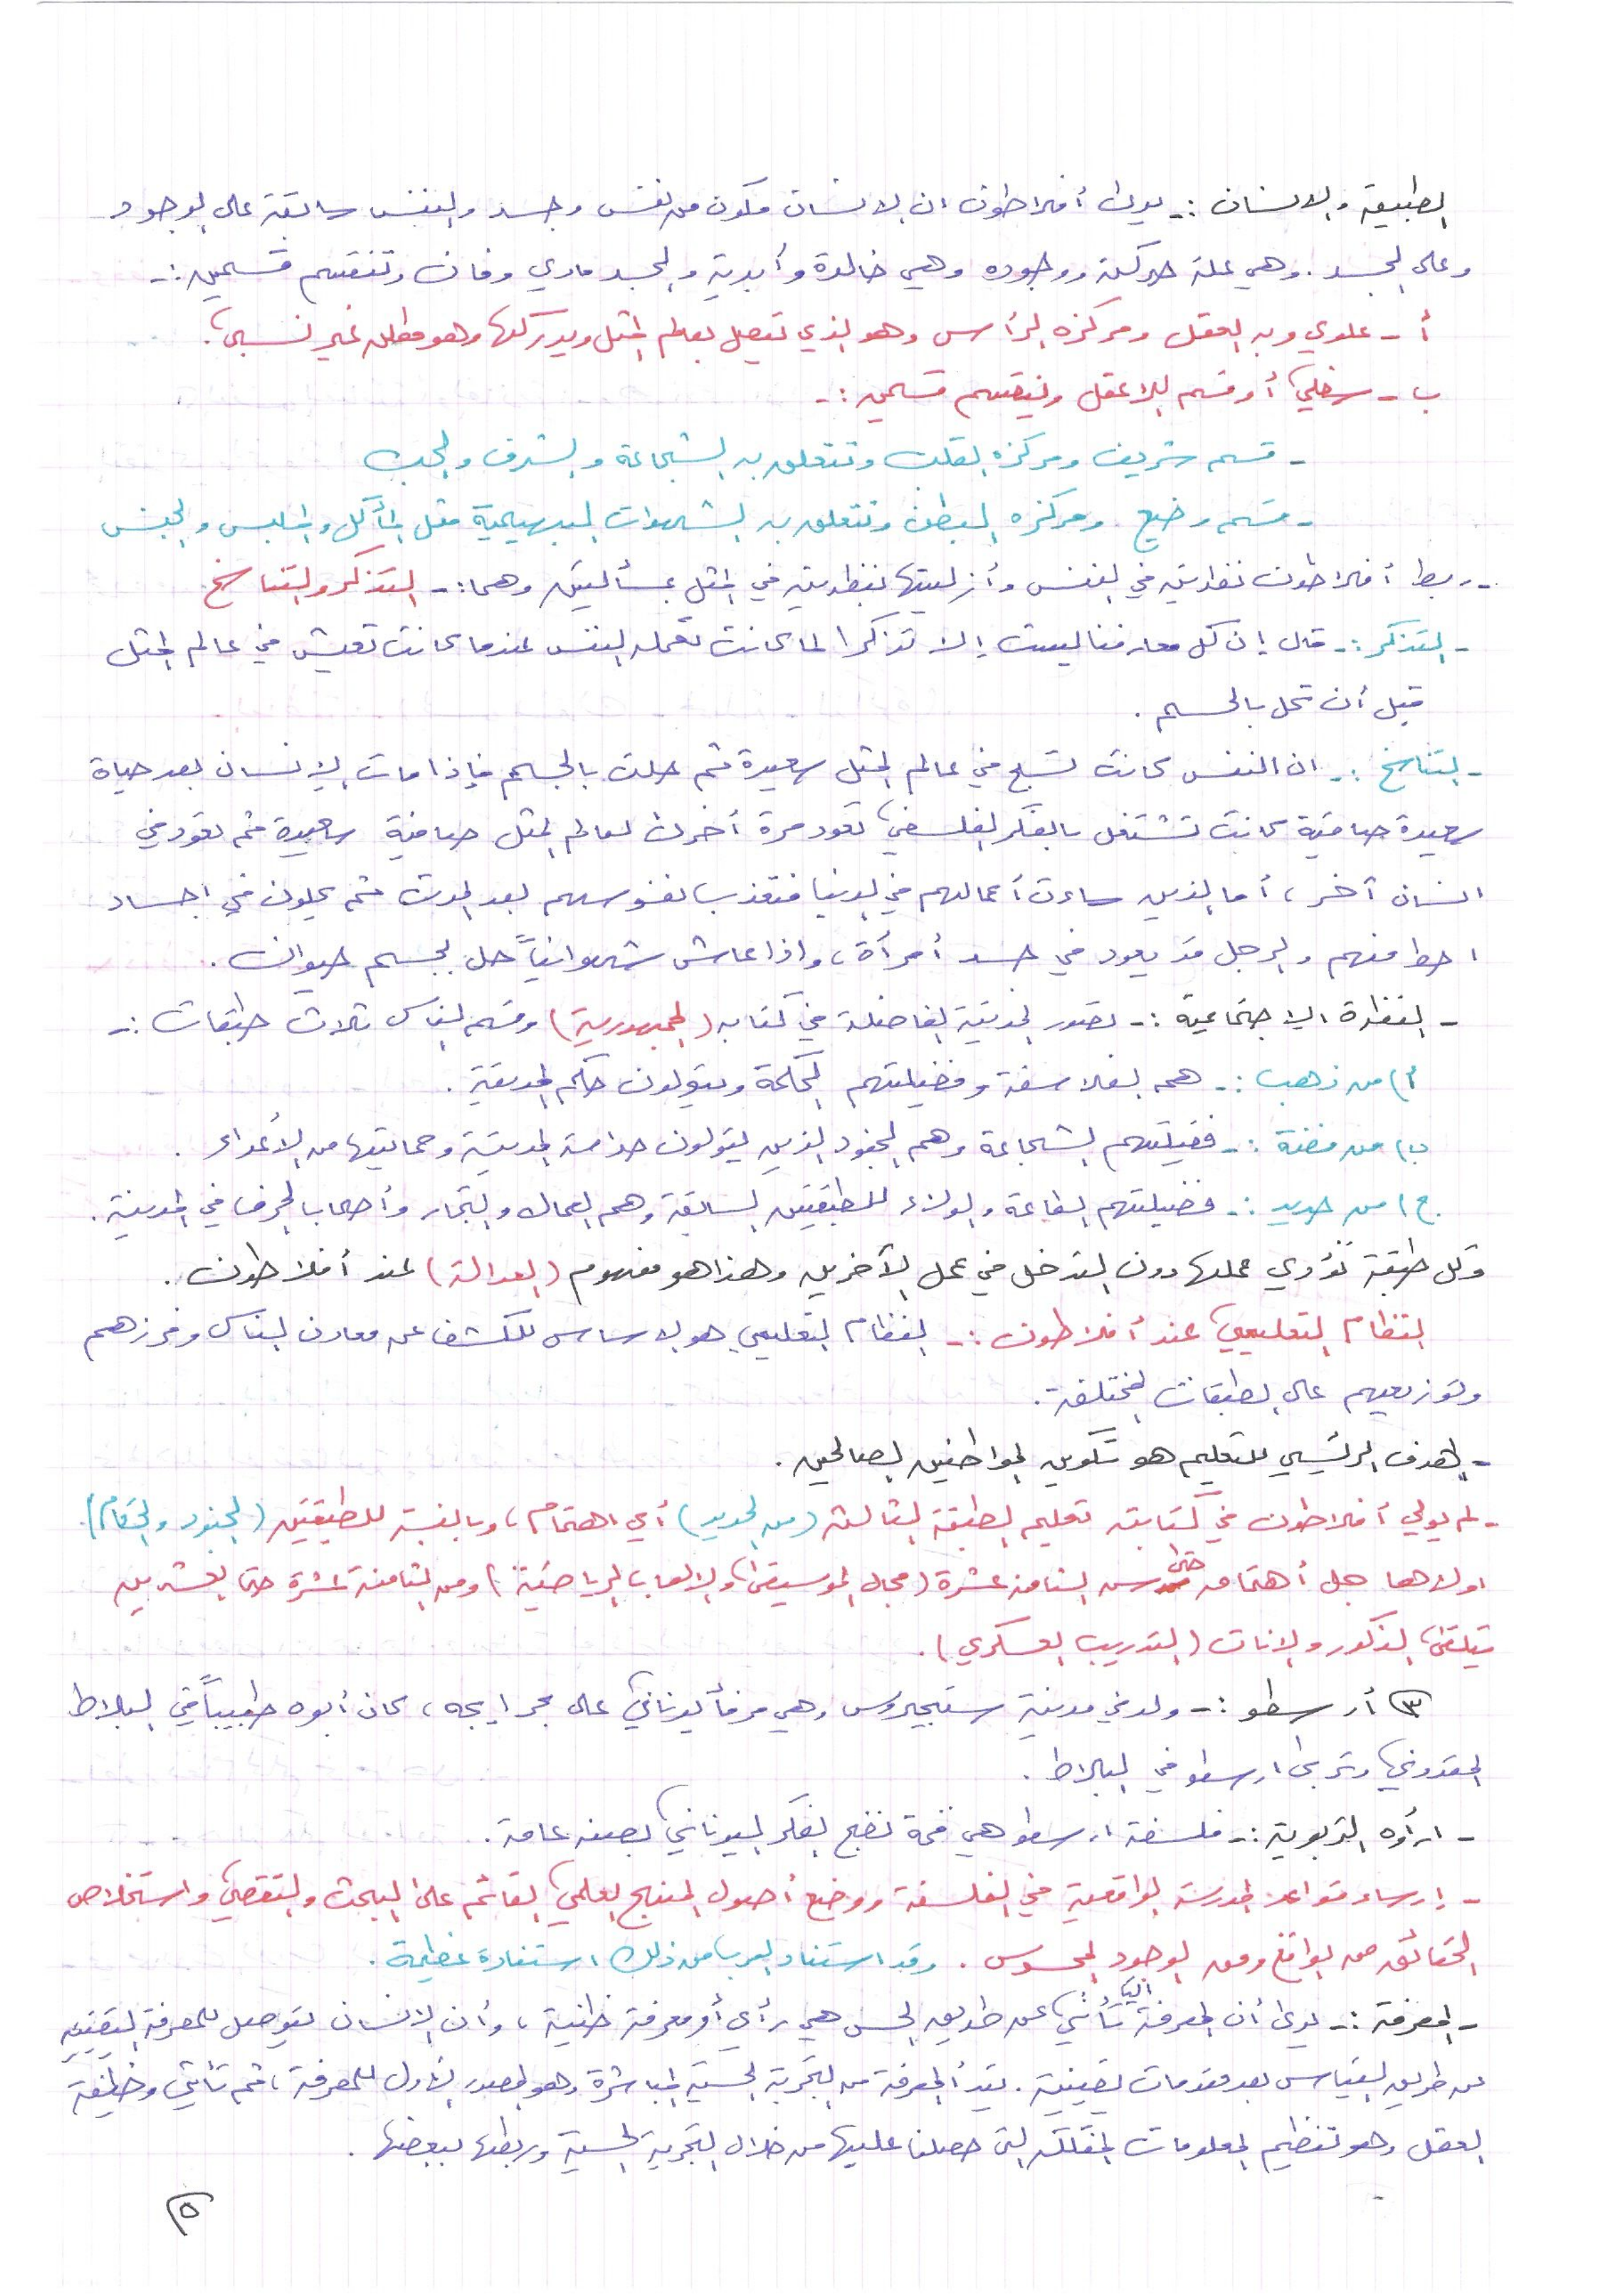 الطبيعة والانسان :- يرى أفلاطون ان الانسان مكون من نفس وجسد والنفس سابقة على الوجود
وعلى الجسد . وهي علة حركته ووجوده وهي خالدة وأبدية والجسد مادي وفان وتنقسم قسمين :-
أ - علوي وبه العقل ومركزه الرأس وهو الذي تتصل بعالم المثل ويدركها وهو مطلق غير نسبي .
ب - سفلي أو قسم اللاعقل وينقسم قسمين :-
- قسم شريف ومركزه القلب وتتعلق به الشجاعة والشرف والحب
- قسم وضيع ومركزه البطن وتتعلق به الشهوات البهيمية مثل المأكل والملبس والجنس
- ربط أفلاطون نظريته في النفس وأزليتها بنظريته في المثل بمسألتين وهما :- التذكر والتناسخ
- التذكر :- قال إن كل معارفنا ليست إلا تذكرا لما كانت تحمله النفس عندما كانت تعيش في عالم المثل
قبل أن تحل بالجسم .
- التناسخ :- ان النفس كانت تسبح في عالم المثل سعيدة ثم حلت بالجسم فإذا مات الإنسان بعد حياة
سعيدة صافية كانت تشتغل بالفكر الفلسفي تعود مرة أخرى لعالم المثل صافية سعيدة ثم تعود في
انسان آخر ، أما الذين ساءت أعمالهم في الدنيا فتعذب نفوسهم بعد الموت ثم يحلون في اجساد
احط منهم والرجل قد يعود في جسد أمرأة ، واذا عاش شهوانياً حل بجسم حيوان .
- النظرة الاجتماعية :- تصور المدينة الفاضلة في كتابه (الجمهورية) وقسم الناس ثلاث طبقات :-
أ) من ذهب :- هم الفلاسفة وفضيلتهم الحكمة ويتولون حكم المدينة .
ب) من فضة :- فضيلتهم الشجاعة وهم الجنود الذين يتولون حراسة المدينة وحمايتها من الأعداء .
ج) من حديد :- فضيلتهم الطاعة والولاء للطبقتين السابقة وهم العمال والتجار وأصحاب الحرف في المدينة .
وكل طبقة تؤدي عملها دون التدخل في عمل الآخرين وهذا هو مفهوم (العدالة) عند أفلاطون .
النظام التعليمي عند أفلاطون :- النظام التعليمي هو الاساس للكشف عن معادن الناس وفرزهم
وتوزيعهم على الطبقات المختلفة .
- الهدف الرئيسي للتعليم هو تكوين المواطنين الصالحين .
- لم يولي أفلاطون في كتاباته تعليم الطبقة الثالثة (من الحديد) أي اهتمام ، وبالنسبة للطبقتين (الجنود والحكام)
اولاهما جل أهتمامه حتى سن الثامنة عشرة (مجال الموسيقى والالعاب الرياضية) ومن الثامنة عشرة حتى العشرين
يتلقى الذكور والاناث (التدريب العسكري) .
٣ أرسطو :- ولد في مدينة ستجيروس وهي مرفأ يوناني على بحر ايجه ، كان أبوه طبيباً في البلاط
المقدوني وتربى ارسطو في البلاط .
- ارأؤه التربوية :- فلسفة ارسطو هي قمة نضج الفكر اليوناني بصفه عامة .
- إرساء قواعد المدرسة الواقعية في الفلسفة ووضع أصول المنهج العلمي القائم على البحث والتقصي واستخلاص
الحقائق من الواقع ومن الوجود المحسوس . وقد استفاد العرب من ذلك استفادة عظيمة .
- المعرفة :- يرى أن المعرفة تأتي الينا عن طريق الحس هي رأي أو معرفة ظنية ، وأن الانسان يتوصل للمعرفة اليقينيه
عن طريق القياس بعد مقدمات يقينية . يبدأ المعرفة من التجربة الحسية المباشرة وهو المصدر الأول للمعرفة ، ثم تأتي وظيفة
العقل وهو تنظيم المعلومات المفككه التى حصلنا عليها من خلال التجربة الحسية وربطها ببعضها .
٥